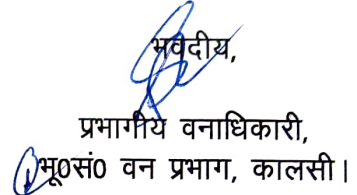 भवदीय,
प्रभागीय वनाधिकारी,
भू0सं0 वन प्रभाग, कालसी।